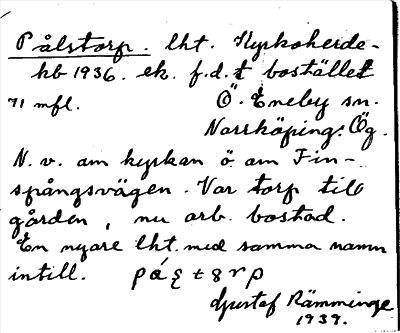 Pålstorp. lht. Kyrkoherde-
hb 1936. ek. f.d.t bostället
71 mfl. Ö. Eneby sn.
Norrköping. Ög.
N. v. om kyrkan ö om Fin-
spångsvägen. Var torp till
gården, nu arb. bostad.
En nyare lht. med samma namn
intill.
Gustaf Rämminge
1939.